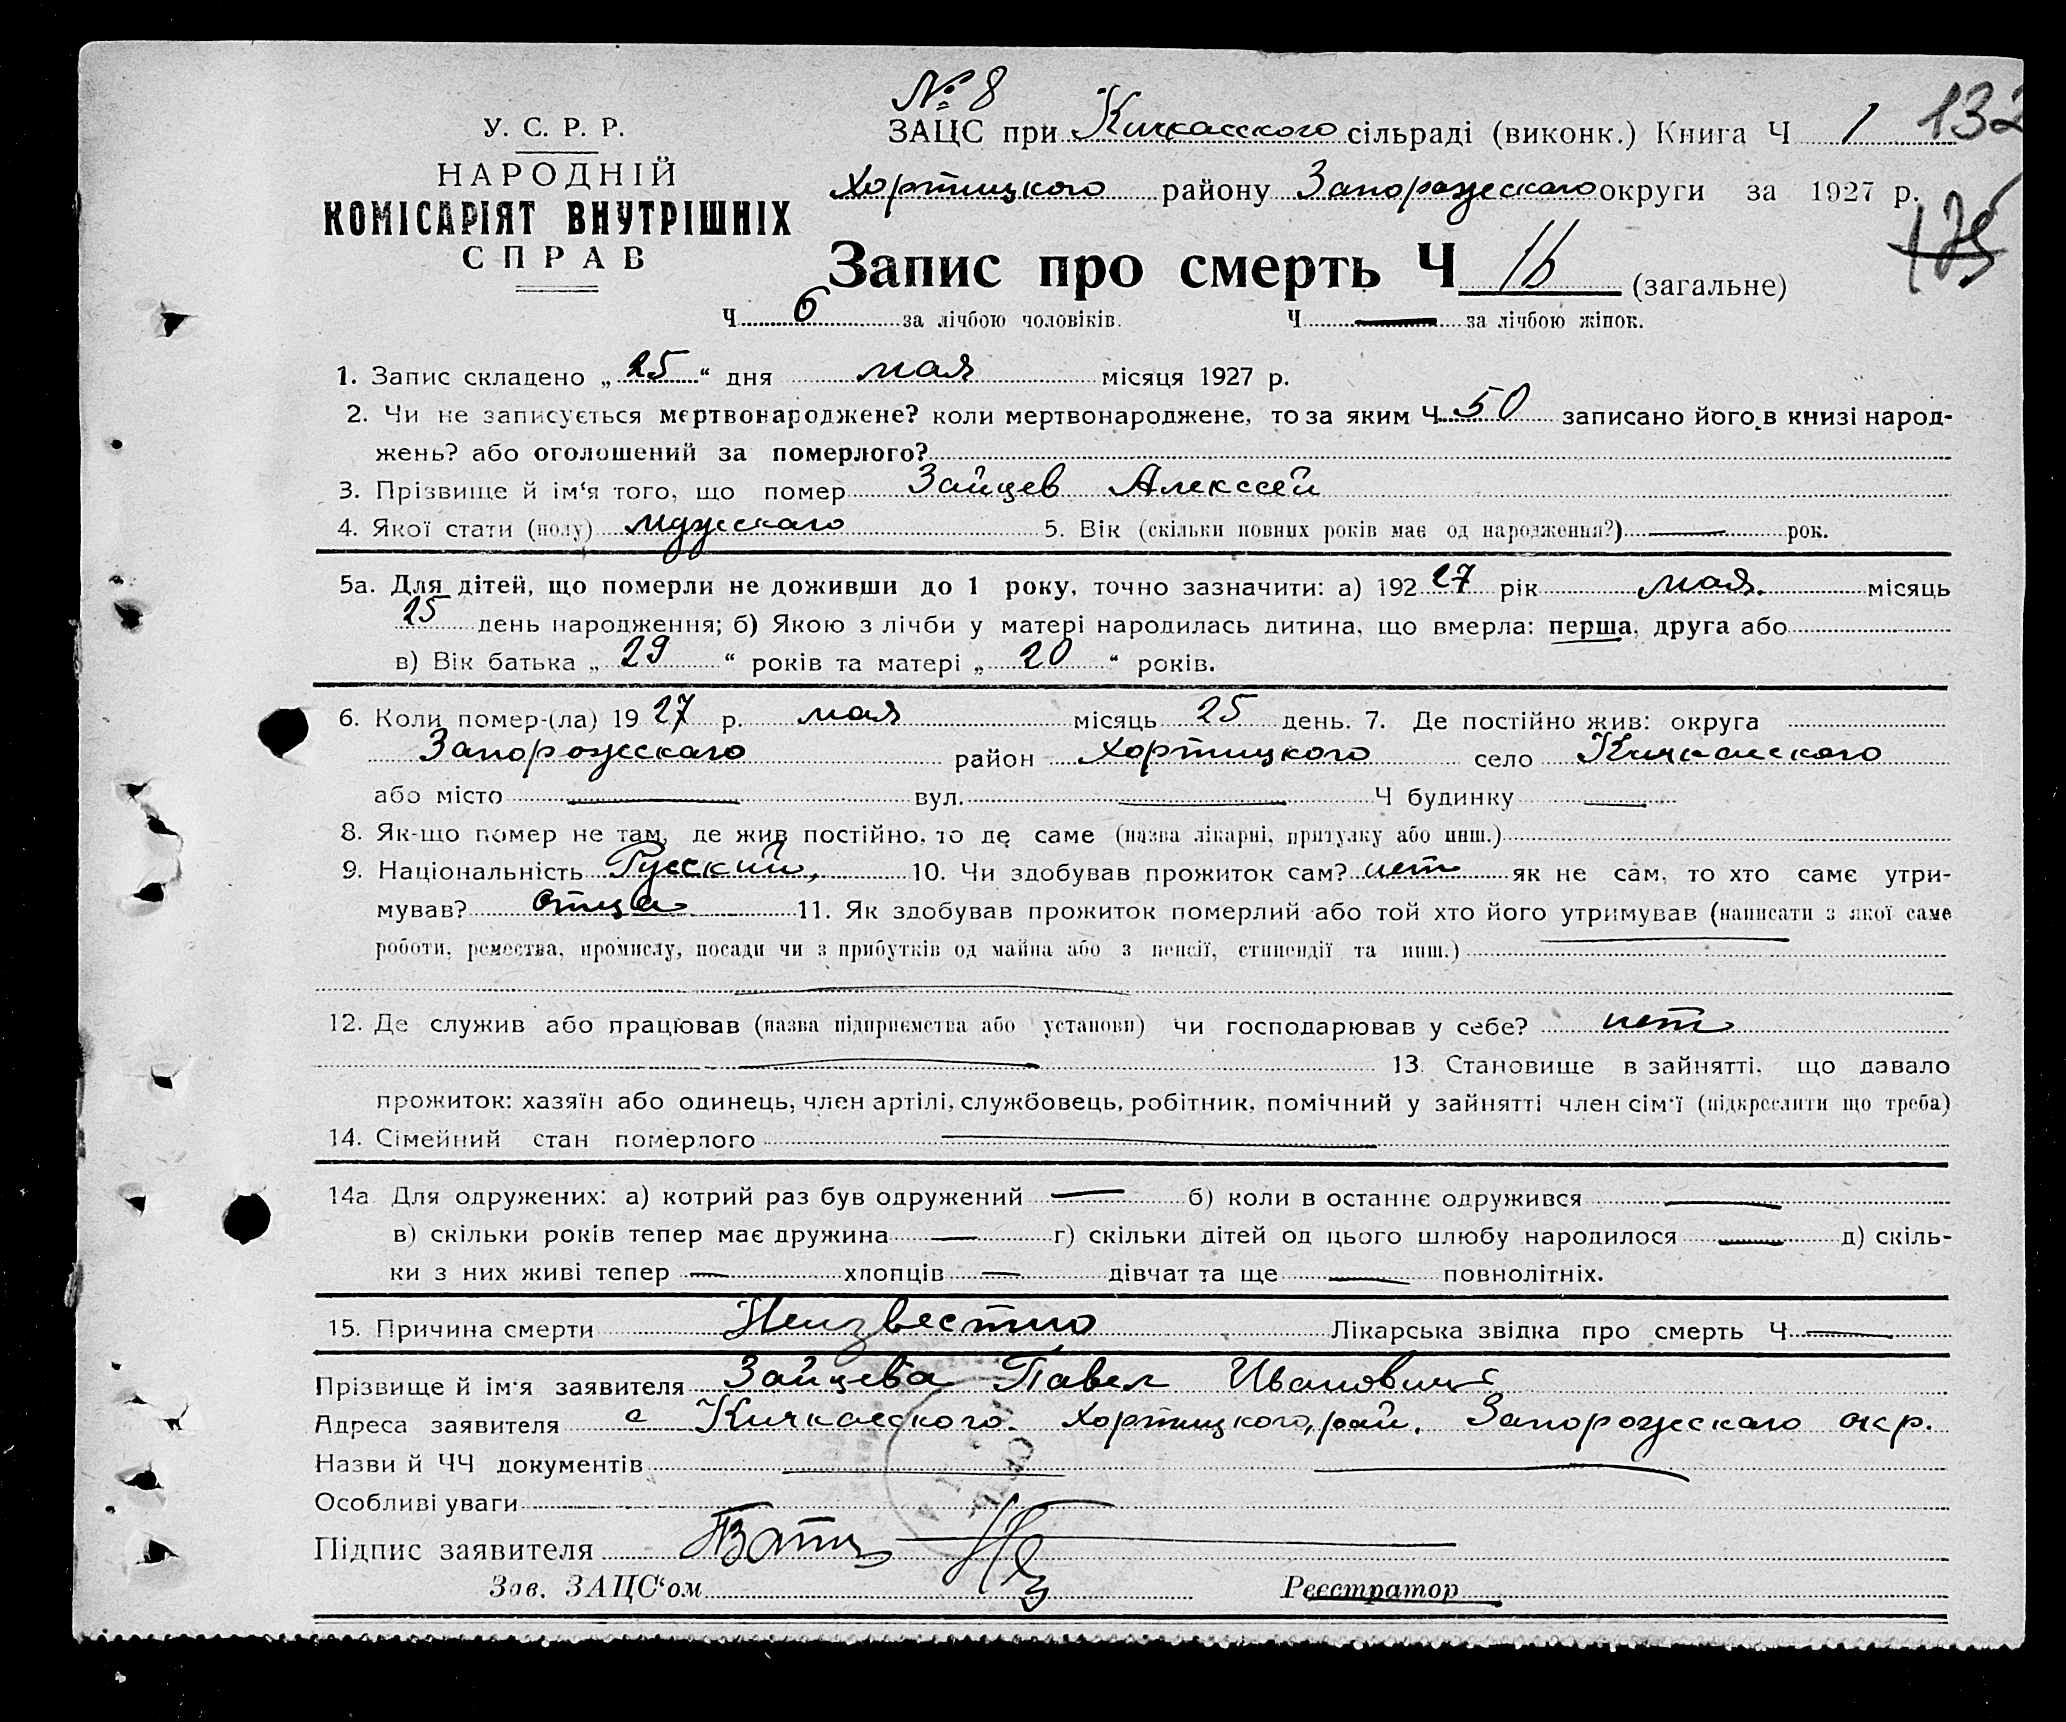 № 8
132
У. С. Р. Р.
ЗАЦС при Кичкасского сільраді (виконк.) Книга Ч 1
НАРОДНІЙ
Хортицкого району Запорожскаго округи за 1927 р.
КОМІСАРІЯТ ВНУТРІШНІХ
175
СПРАВ
Запис про смерть Ч 16 (загальне)
Ч 6 за лічбою чоловіків. Ч — за лічбою жінок.
1. Запис складено „25“ дня мая місяця 1927 р.
2. Чи не записується мертвонароджене? коли мертвонароджене, то за яким Ч 50 записано його в книзі народ-
жень? або оголошений за померлого?
3. Прізвище й ім‘я того, що помер Зайцев Алекссей
4. Якої стати (полу) мужскаго 5. Вік (скільки повних років має од народження?) — рок.
5а. Для дітей, що померли не доживши до 1 року, точно зазначити: а) 192 27 рік мая місяць
25 день народження; б) Якою з лічби у матері народилась дитина, що вмерла: перша, друга або
в) Вік батька „29“ років та матері „20“ років.
6. Коли помер-(ла) 19 27 р. мая місяць 25 день. 7. Де постійно жив: округа
Запорожскаго район Хортицкого село Кичкасского
або місто — вул. — Ч будинку —
8. Як-що помер не там, де жив постійно, то де саме (назва лікарні, притулку або инш.)
9. Національність Русский, 10. Чи здобував прожиток сам? нет як не сам, то хто саме утри-
мував? отца 11. Як здобував прожиток померлий або той хто його утримував (написати з якої саме
роботи, ремества, промислу, посади чи з прибутків од майна або з пенсії, стипендії та инш.)
12. Де служив або працював (назва підприємства або установи) чи господарював у себе? нет
— 13. Становище в зайнятті, що давало
прожиток: хазяїн або одинець, член артілі, службовець, робітник, помічний у зайнятті член сім‘ї (підкреслити що треба)
14. Сімейний стан померлого —
14а Для одружених: а) котрий раз був одружений — б) коли в останнє одружився —
в) скільки років тепер має дружина — г) скільки дітей од цього шлюбу народилося — д) скіль-
ки з них живі тепер — хлопців — дівчат та ще — повнолітніх.
15. Причина смерти Неизвестно Лікарська звідка про смерть Ч —
Прізвище й ім‘я заявителя Зайцева Павел Иванович
Адреса заявителя с Кичкасского Хортицкого, рай. Запорожскаго окр.
Назви й ЧЧ документів — —
Особливі уваги
Підпис заявителя
Зав. ЗАЦС‘ом Реєстратор